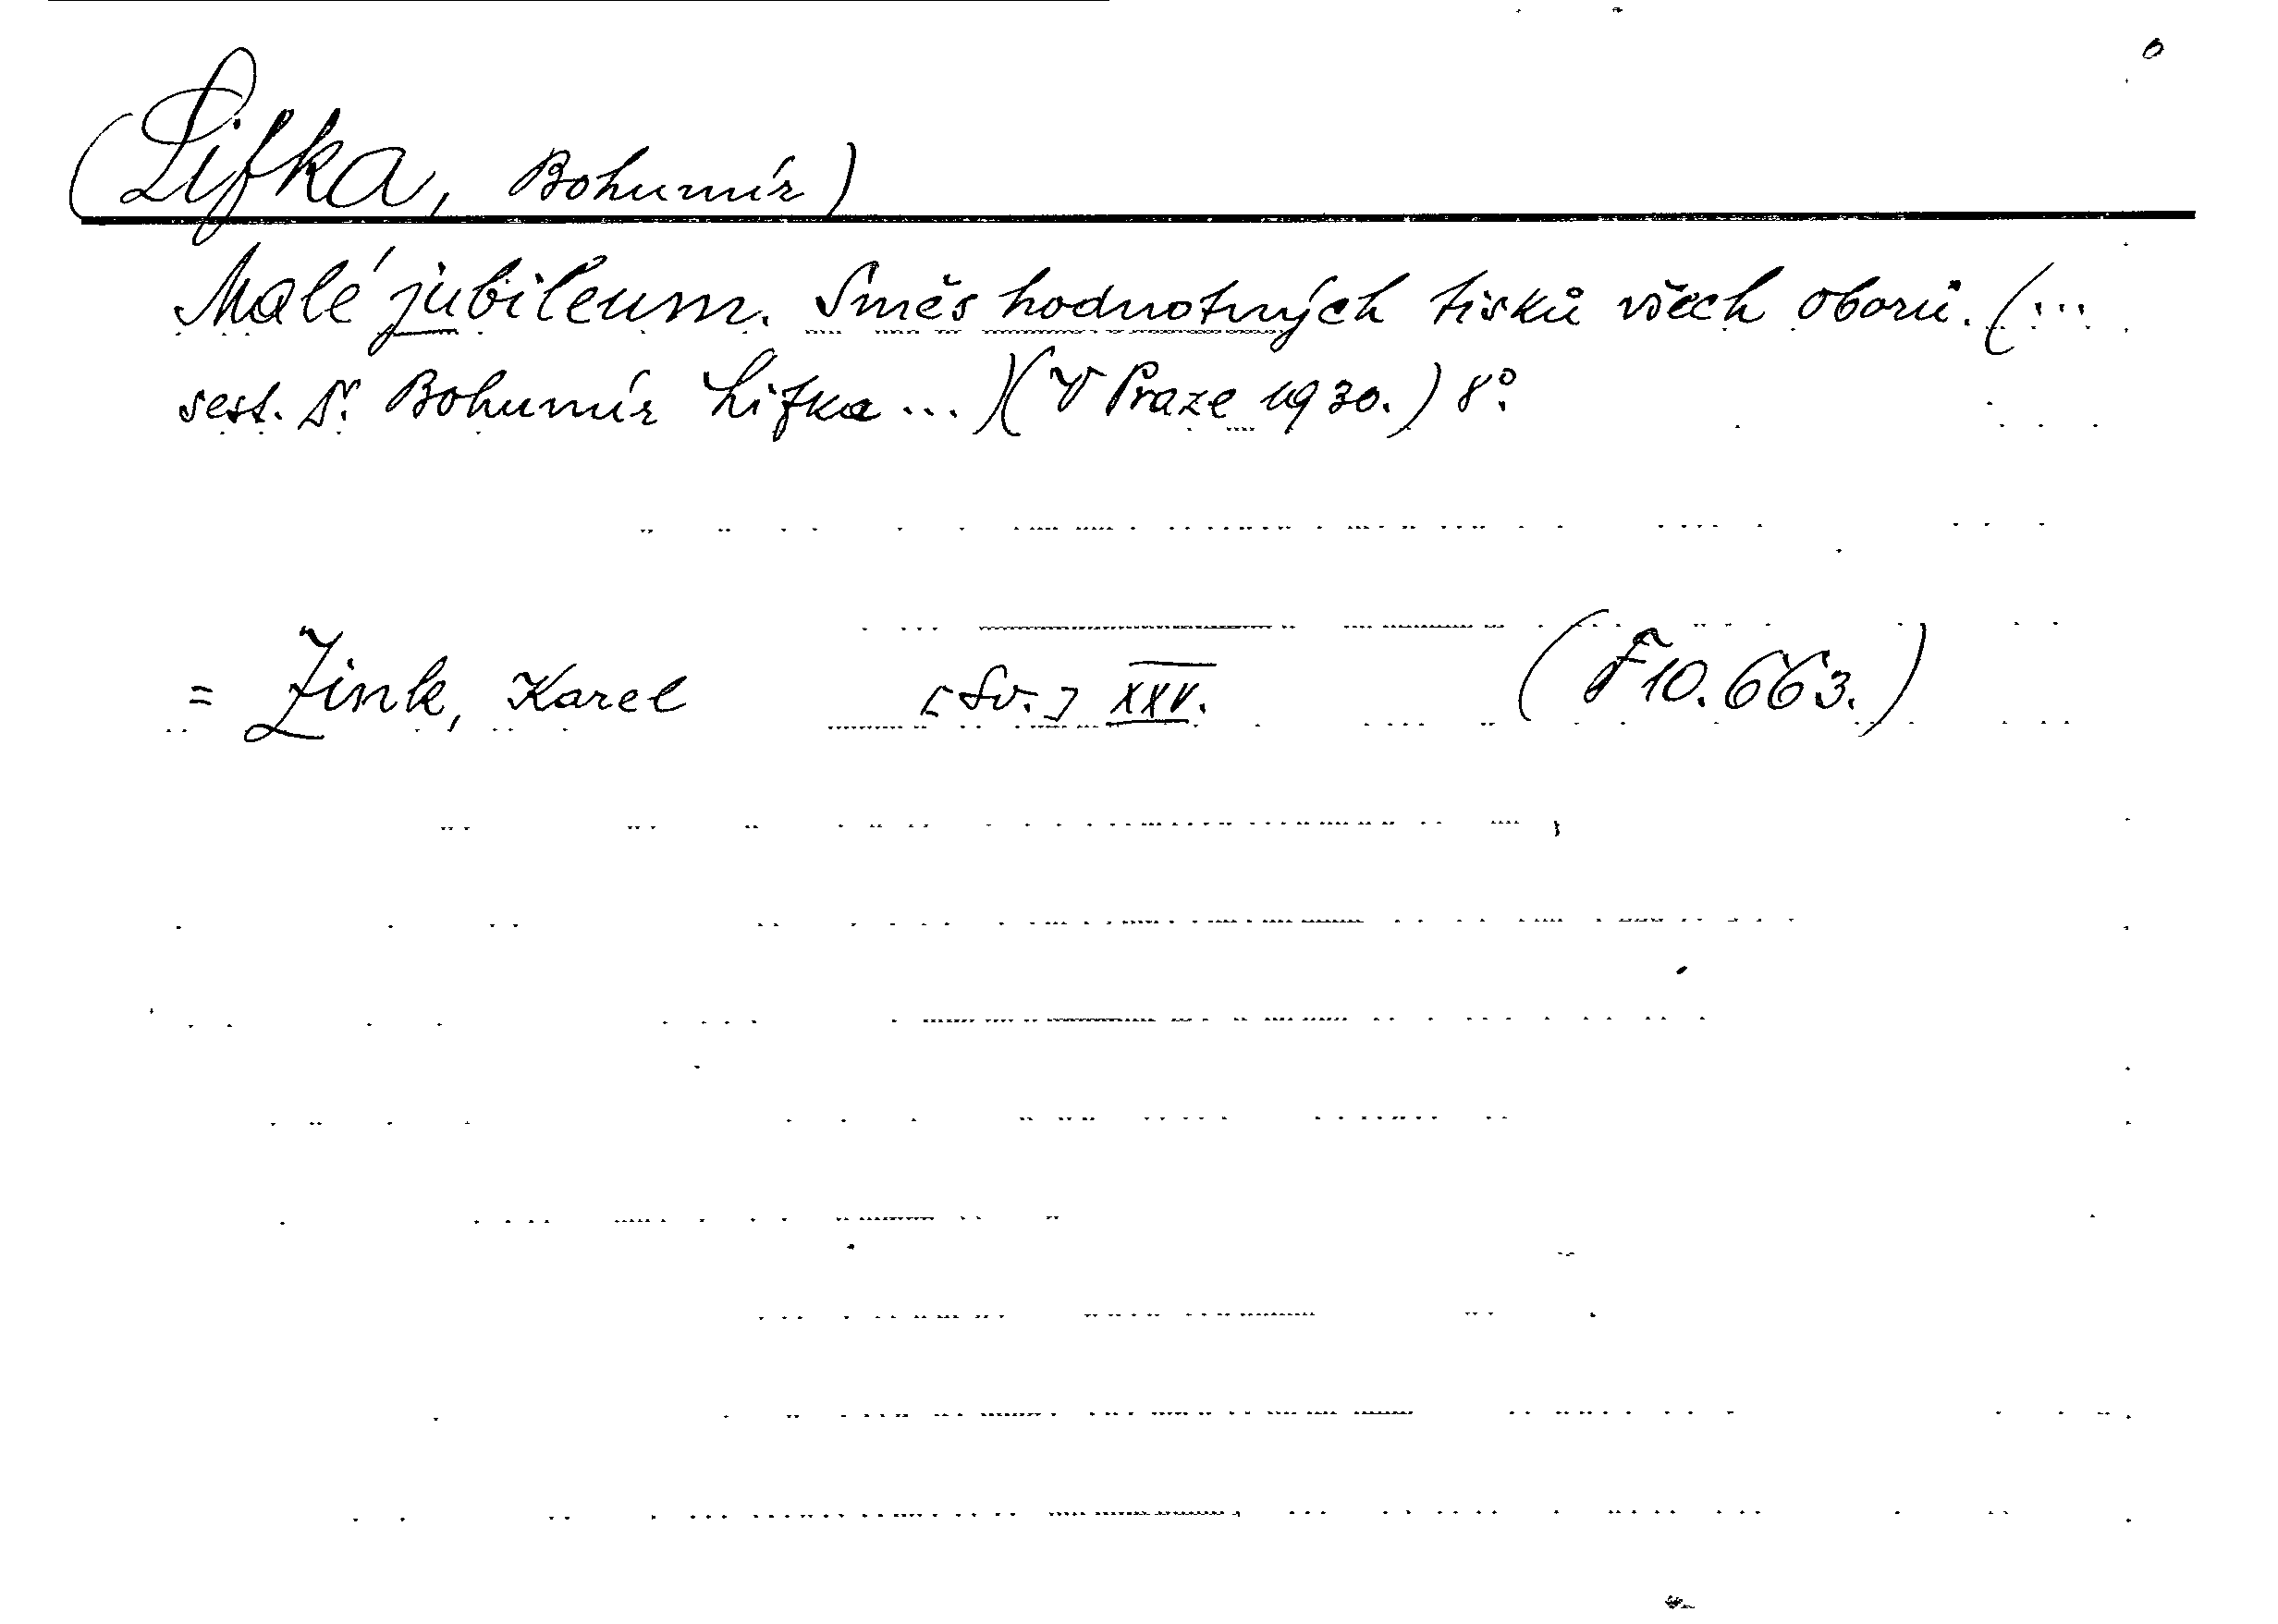 (Lifka, Bohumír)
Malé jubileum. Směs hodnotných tisků všech oborů. (...
sest. Dr. Bohumír Lifka ...) (V Praze 1930.) 8°.
= Zink, Karel [Sv.] XXV. (F 10.663.)